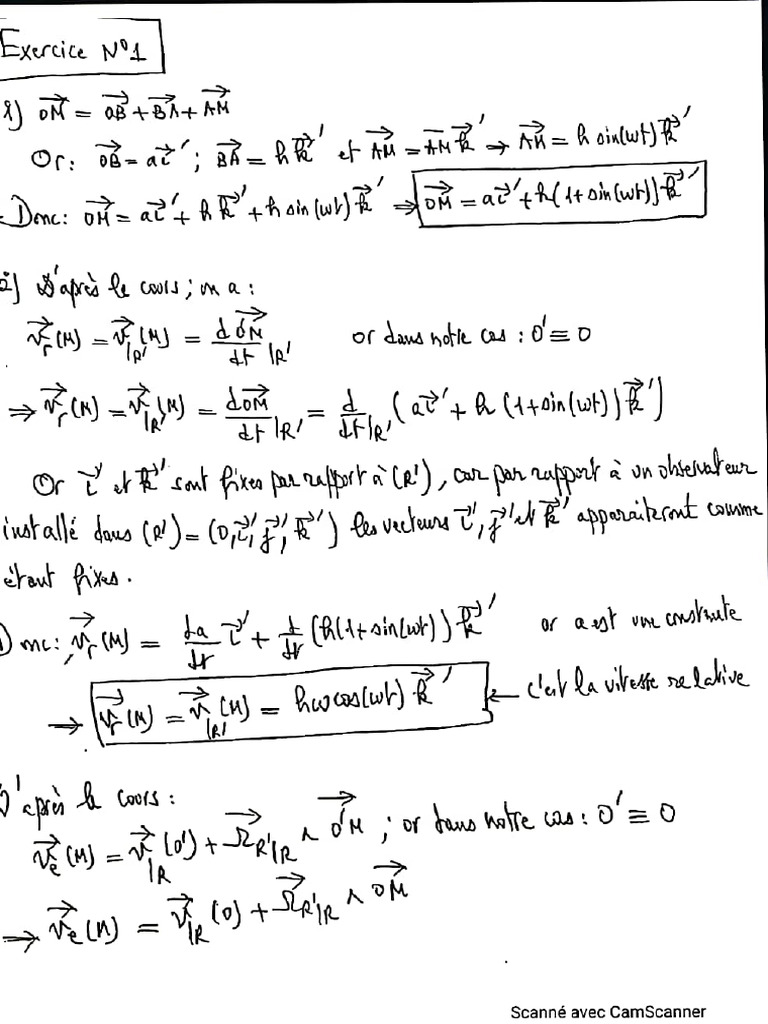 Exercice N°1
1) OM→ = OB→ + BA→ + AM→
Or: OB→ = a i→' ; BA→ = h k→' et AM→ = A̅M̅ k→' → AM→ = h sin(ωt) k→'
Donc: OM→ = a i→' + h k→' + h sin(ωt) k→' ⇒ OM→ = a i→' + h(1+sin(ωt)) k→'
2) D'après le cours ; on a :
V→r(M) = V→/R'(M) = dO'M→/dt /R' or dans notre cas : O' ≡ O
⇒ V→r(M) = V→/R'(M) = dOM→/dt /R' = d/dt /R' (a i→' + h (1+sin(ωt)) k→')
Or i→' et k→' sont fixes par rapport à (R'), car par rapport à un observateur
installé dans (R') = (O, i→', j→', k→') les vecteurs i→', j→' et k→' apparaiteront comme
étant fixes.
Donc: V→r(M) = da/dt i→' + d/dt (h(1+sin(ωt)) k→' or a est une constante
→ V→r(M) = V→/R'(M) = hωcos(ωt) k→' ← c'est la vitesse relative
D'après le cours :
V→e(M) = V→/R(O') + Ω→R'/R ∧ O'M→ ; or dans notre cas : O' ≡ O
⇒ V→e(M) = V→/R(O) + Ω→R'/R ∧ OM→
Scanné avec CamScanner